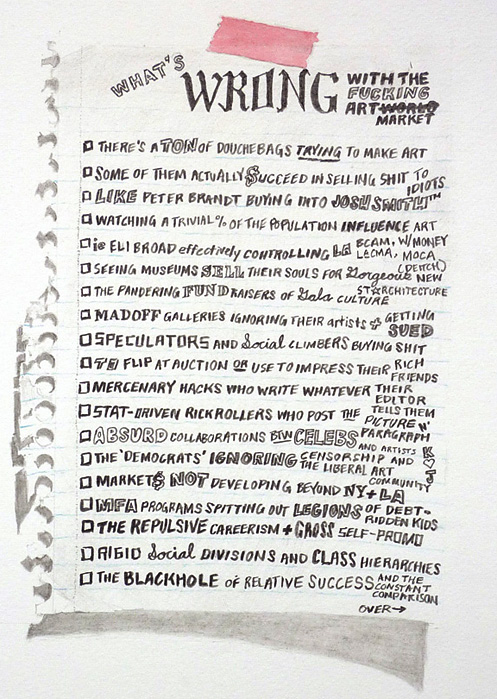 WHAT'S WRONG WITH THE
FUCKING
ART WORLD
MARKET
THERE'S A TON OF DOUCHEBAGS TRYING TO MAKE ART
SOME OF THEM ACTUALLY $UCCEED IN SELLING SHIT TO IDIOTS
LIKE PETER BRANDT BUYING INTO JOSH SMITH™
WATCHING A TRIVIAL % OF THE POPULATION INFLUENCE ART
ie ELI BROAD effectively CONTROLLING LA BCAM, W/MONEY
LACMA, MOCA
(DEITCH)
SEEING MUSEUMS SELL THEIR SOULS FOR Gorgeous NEW
ST☆RCHITECTURE
THE PANDERING FUNDRAISERS OF Gala CULTURE
MADOFF GALLERIES IGNORING THEIR artists + GETTING
SUED
SPECULATORS AND Social CLIMBERS BUYING SHIT
TO FLIP AT AUCTION OR USE TO IMPRESS THEIR RICH
FRIENDS
MERCENARY HACKS WHO WRITE WHATEVER THEIR
EDITOR
TELLS THEM
STAT-DRIVEN RICKROLLERS WHO POST THE PICTURE N'
PARAGRAPH
ABSURD COLLABORATIONS BTW CELEBS AND ARTISTS
THE 'DEMOCRATS' IGNORING CENSORSHIP AND
THE LIBERAL ART
COMMUNITY
MARKET$ NOT DEVELOPING BEYOND NY + LA
MFA PROGRAMS SPITTING OUT LEGIONS OF DEBT-
RIDDEN KIDS
THE REPULSIVE CAREERISM + GROSS SELF-PROMO
RIGID Social DIVISIONS AND CLASS HIERARCHIES
THE BLACKHOLE OF RELATIVE SUCCESS AND THE
CONSTANT
COMPARISON
OVER→